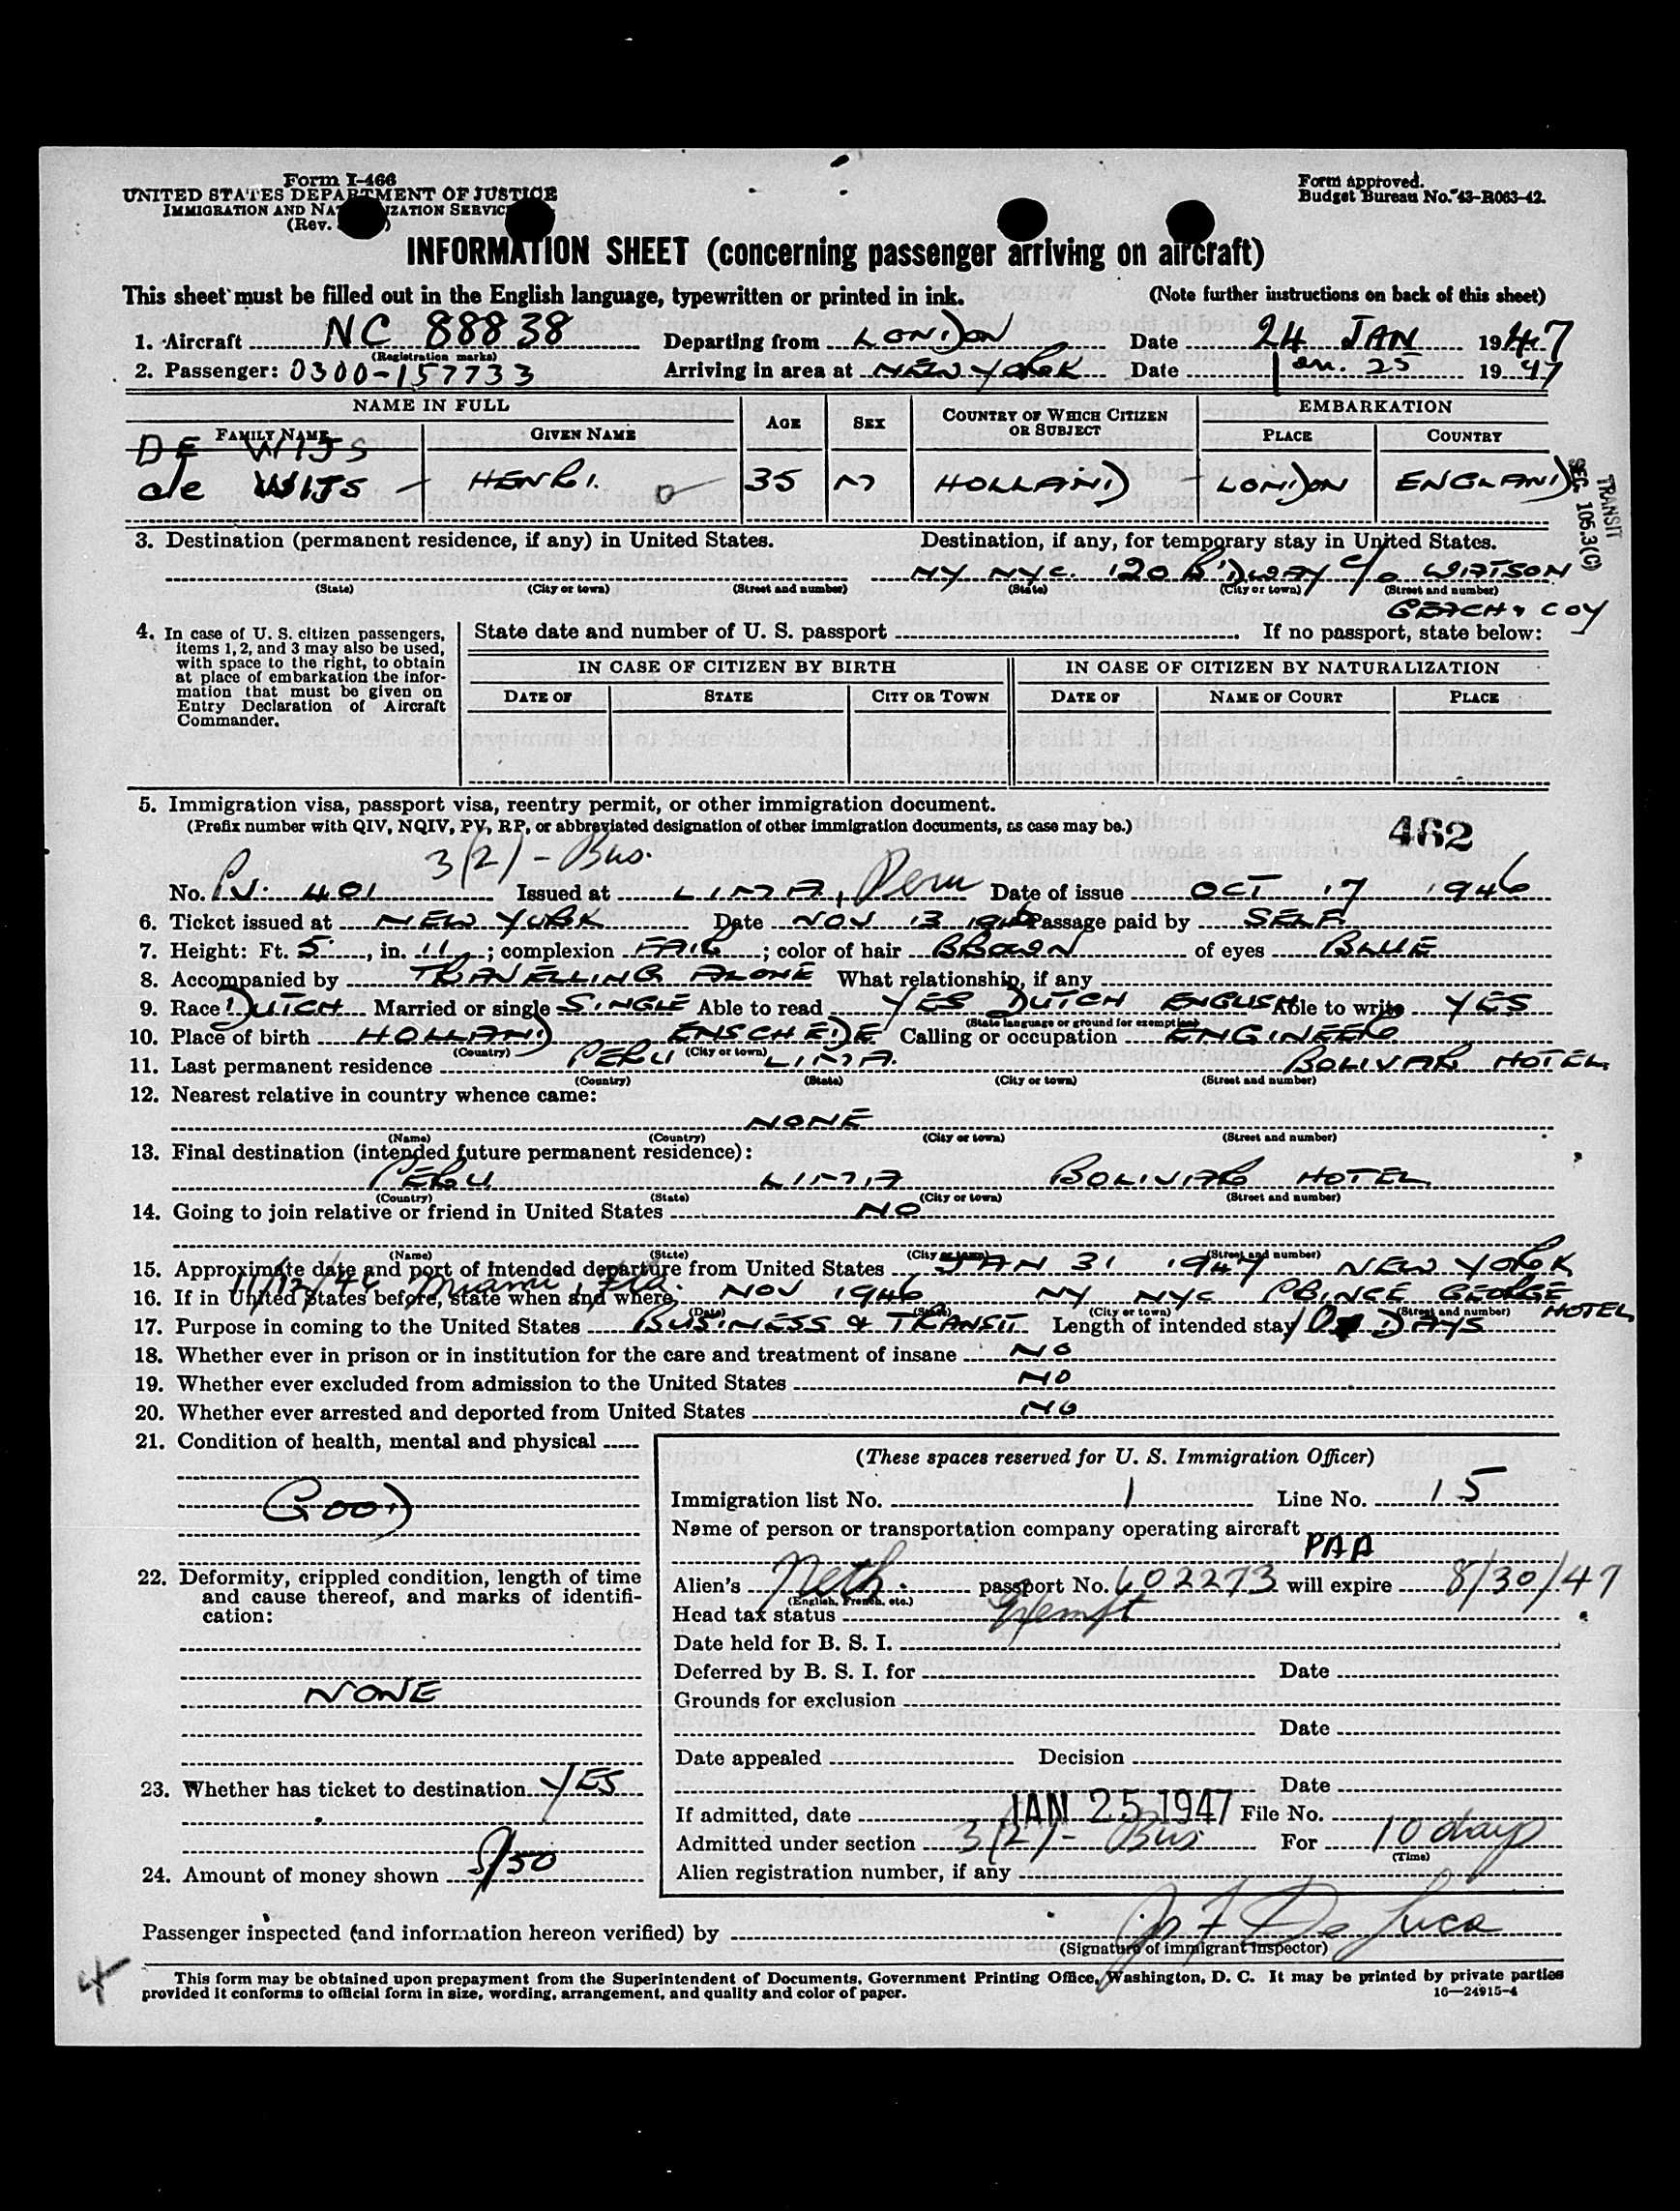 Form I-466
UNITED STATES DEPARTMENT OF JUSTICE
IMMIGRATION AND NATURALIZATION SERVICE
(Rev.
Form approved.
Budget Bureau No. 43-R063-42.
INFORMATION SHEET (concerning passenger arriving on aircraft)
This sheet must be filled out in the English language, typewritten or printed in ink. (Note further instructions on back of this sheet)
1. Aircraft NC 88838 Departing from LONDON Date 24 JAN 1947
(Registration marks)
2. Passenger: 0300-157733 Arriving in area at NEW YORK Date Jan. 25 1947
NAME IN FULL AGE SEX COUNTRY OF WHICH CITIZEN OR SUBJECT EMBARKATION
FAMILY NAME GIVEN NAME PLACE COUNTRY
DE WIJS
de WIJS - HENRI. 35 M HOLLAND - LONDON ENGLAND
TRANSIT
SEC. 105.3(C)
3. Destination (permanent residence, if any) in United States. Destination, if any, for temporary stay in United States.
NY NYC. 120 B'DWAY c/o WATSON
(State) (City or town) (Street and number) (State) (City or town) (Street and number)
GEACH & COY
4. In case of U. S. citizen passengers, items 1, 2, and 3 may also be used, with space to the right, to obtain at place of embarkation the information that must be given on Entry Declaration of Aircraft Commander.
State date and number of U. S. passport If no passport, state below:
IN CASE OF CITIZEN BY BIRTH IN CASE OF CITIZEN BY NATURALIZATION
DATE OF STATE CITY OR TOWN DATE OF NAME OF COURT PLACE
5. Immigration visa, passport visa, reentry permit, or other immigration document.
(Prefix number with QIV, NQIV, PV, RP, or abbreviated designation of other immigration documents, as case may be.)
462
3(2) - Bus.
No. P.V. 401 Issued at LIMA, Peru Date of issue OCT 17 1946
6. Ticket issued at NEW YORK Date NOV 13 1946 Passage paid by SELF
7. Height: Ft. 5, in. 11; complexion FAIR; color of hair BROWN of eyes BLUE
8. Accompanied by TRAVELLING ALONE What relationship, if any
9. Race DUTCH Married or single SINGLE Able to read YES DUTCH ENGLISH Able to write YES
(State language or ground for exemption)
10. Place of birth HOLLAND ENSCHEDE Calling or occupation ENGINEER
(Country) (City or town)
11. Last permanent residence PERU LIMA. BOLIVAR HOTEL
(Country) (State) (City or town) (Street and number)
12. Nearest relative in country whence came:
NONE
(Name) (Country) (City or town) (Street and number)
13. Final destination (intended future permanent residence):
PERU LIMA BOLIVAR HOTEL
(Country) (State) (City or town) (Street and number)
14. Going to join relative or friend in United States NO
(Name) (State) (City or town) (Street and number)
15. Approximate date and port of intended departure from United States JAN 31 1947 NEW YORK
11/12/46 Miami, Fla.
16. If in United States before, state when and where NOV 1946 NY NYC PRINCE GEORGE HOTEL
(Date) (State) (City or town) (Street and number)
17. Purpose in coming to the United States BUSINESS & TRANSIT Length of intended stay 10 DAYS
18. Whether ever in prison or in institution for the care and treatment of insane NO
19. Whether ever excluded from admission to the United States NO
20. Whether ever arrested and deported from United States NO
21. Condition of health, mental and physical
GOOD
22. Deformity, crippled condition, length of time and cause thereof, and marks of identification:
NONE
23. Whether has ticket to destination YES
24. Amount of money shown $150
(These spaces reserved for U. S. Immigration Officer)
Immigration list No. 1 Line No. 15
Name of person or transportation company operating aircraft
PAA
Alien's Neth. passport No. 602273 will expire 8/30/47
(English, French, etc.)
Head tax status Exempt
Date held for B. S. I.
Deferred by B. S. I. for Date
Grounds for exclusion
Date
Date appealed Decision
Date
If admitted, date JAN 25 1947 File No.
Admitted under section 3(2)- Bus For 10 days
(Time)
Alien registration number, if any
Passenger inspected (and information hereon verified) by De Luca
(Signature of immigrant inspector)
This form may be obtained upon prepayment from the Superintendent of Documents, Government Printing Office, Washington, D. C. It may be printed by private parties
provided it conforms to official form in size, wording, arrangement, and quality and color of paper.
16—24915-4